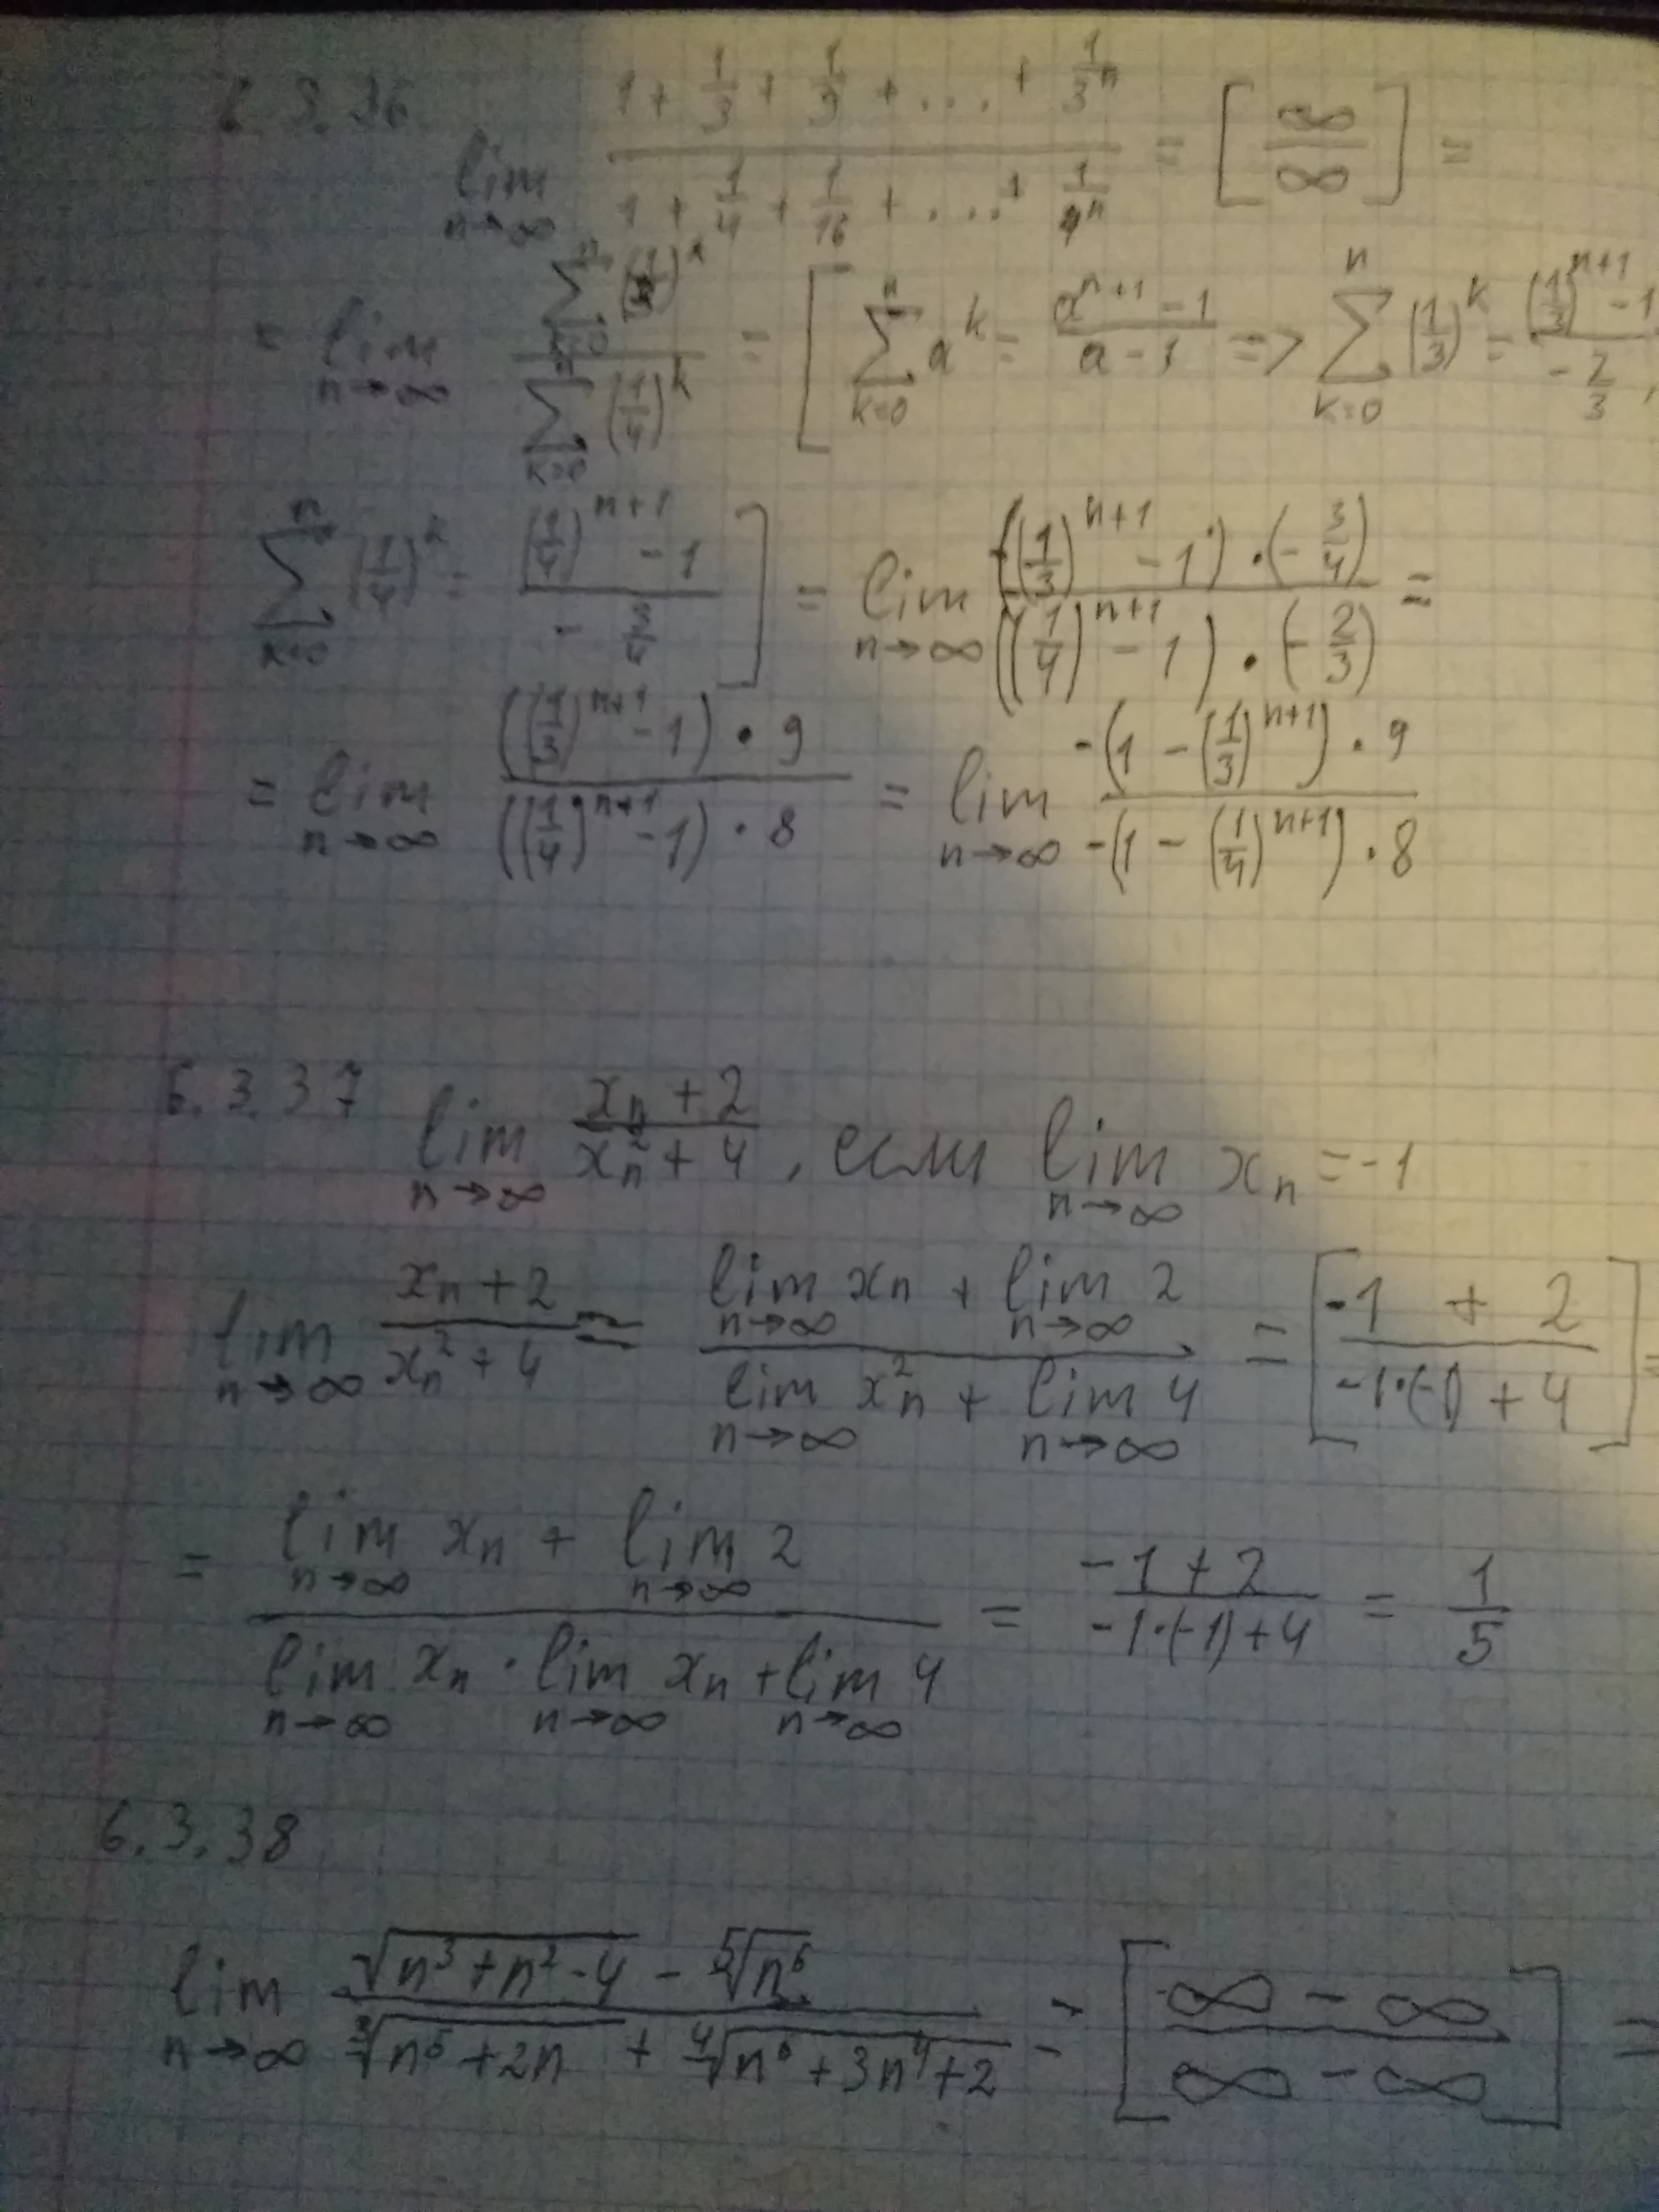 6.3.36
lim_{n→∞} (1 + 1/3 + 1/9 + ... + 1/3^n) / (1 + 1/4 + 1/16 + ... + 1/4^n) = [∞/∞] =
= lim_{n→∞} (∑_{k=0}^{n} (1/3)^k) / (∑_{k=0}^{n} (1/4)^k) = [∑_{k=0}^{n} a^k = (a^{n+1} - 1)/(a - 1) => ∑_{k=0}^{n} (1/3)^k = ((1/3)^{n+1} - 1)/(-2/3),
∑_{k=0}^{n} (1/4)^k = ((1/4)^{n+1} - 1)/(-3/4)] = lim_{n→∞} (((1/3)^{n+1} - 1) · (-3/4)) / (((1/4)^{n+1} - 1) · (-2/3)) =
= lim_{n→∞} (((1/3)^{n+1} - 1) · 9) / (((1/4)^{n+1} - 1) · 8) = lim_{n→∞} (-(1 - (1/3)^{n+1}) · 9) / (-(1 - (1/4)^{n+1}) · 8)
6.3.37 lim_{n→∞} (x_n + 2)/(x_n^2 + 4), если lim_{n→∞} x_n = -1
lim_{n→∞} (x_n + 2)/(x_n^2 + 4) = (lim_{n→∞} x_n + lim_{n→∞} 2) / (lim_{n→∞} x_n^2 + lim_{n→∞} 4) = [(-1 + 2)/(-1·(-1) + 4)] =
= (lim_{n→∞} x_n + lim_{n→∞} 2) / (lim_{n→∞} x_n · lim_{n→∞} x_n + lim_{n→∞} 4) = (-1 + 2)/(-1·(-1) + 4) = 1/5
6.3.38
lim_{n→∞} (√(n^3 + n^2 - 4) - ⁵√(n^6)) / (³√(n^5 + 2n) + ⁴√(n^6 + 3n^4 + 2)) = [(∞ - ∞)/(∞ - ∞)] =